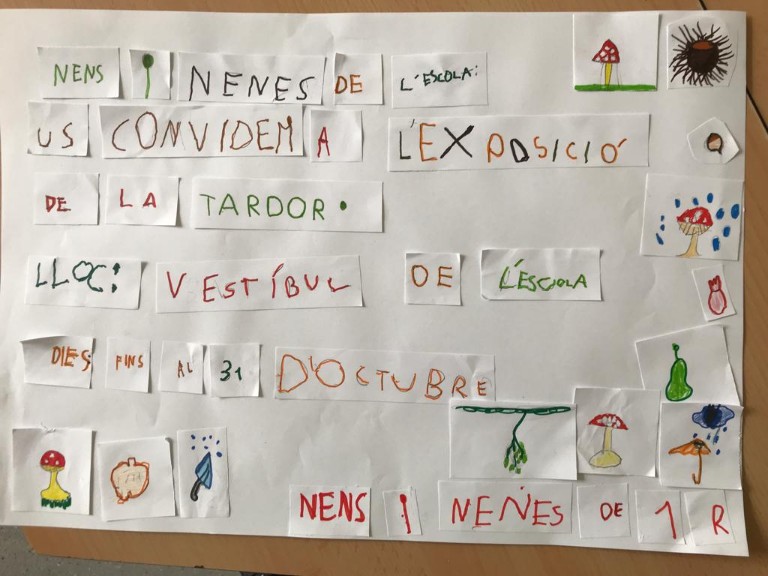 NENS I NENES DE L'ESCOLA:
US CONVIDEM A L'EXPOSICIÓ
DE LA TARDOR.
LLOC: VESTÍBUL DE L'ESCOLA
DIES: FINS AL 31 D'OCTUBRE
NENS I NENES DE 1 R